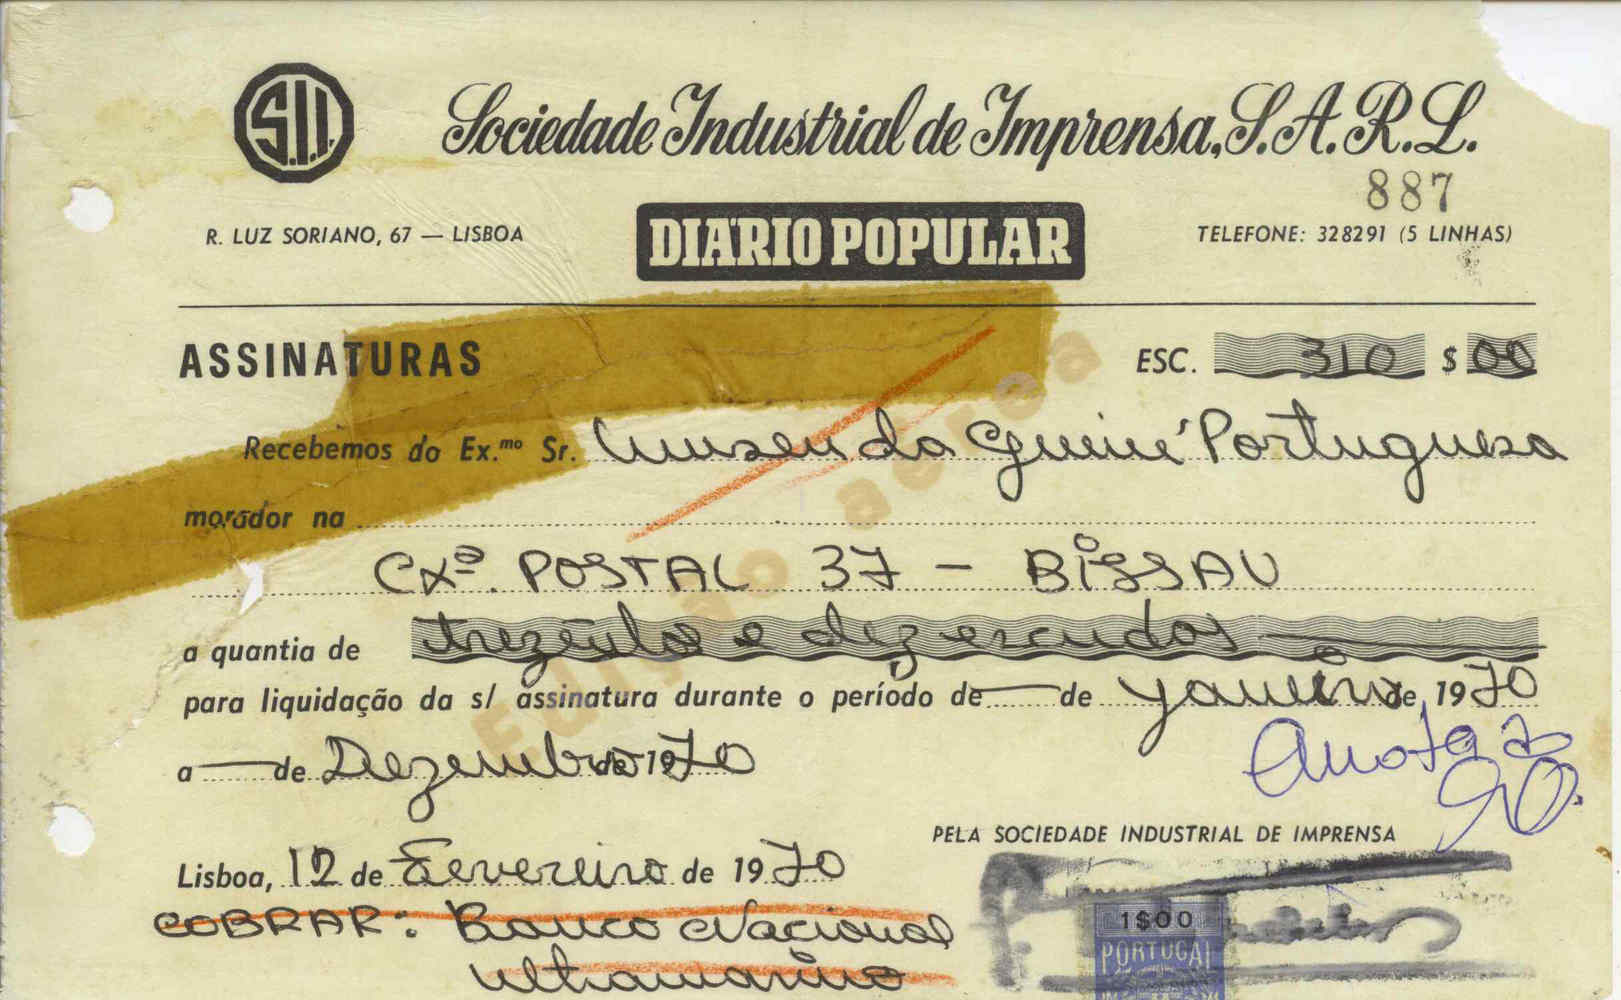 S.I.I.
Sociedade Industrial de Imprensa, S.A.R.L.
887
R. LUZ SORIANO, 67 — LISBOA
DIÁRIO POPULAR
TELEFONE: 328291 (5 LINHAS)
ASSINATURAS
ESC. 310 $ 00
Recebemos do Ex.mo Sr. Museu da Guiné Portuguesa
morador na
Cxª. POSTAL 37 - BISSAU
a quantia de trezentos e dez escudos
para liquidação da s/ assinatura durante o período de — de Janeiro de 1970
a — de Dezembro de 1970
Edição aérea
PELA SOCIEDADE INDUSTRIAL DE IMPRENSA
Lisboa, 12 de Fevereiro de 1970
COBRAR: Banco Nacional
Ultramarino
1$00
PORTUGAL